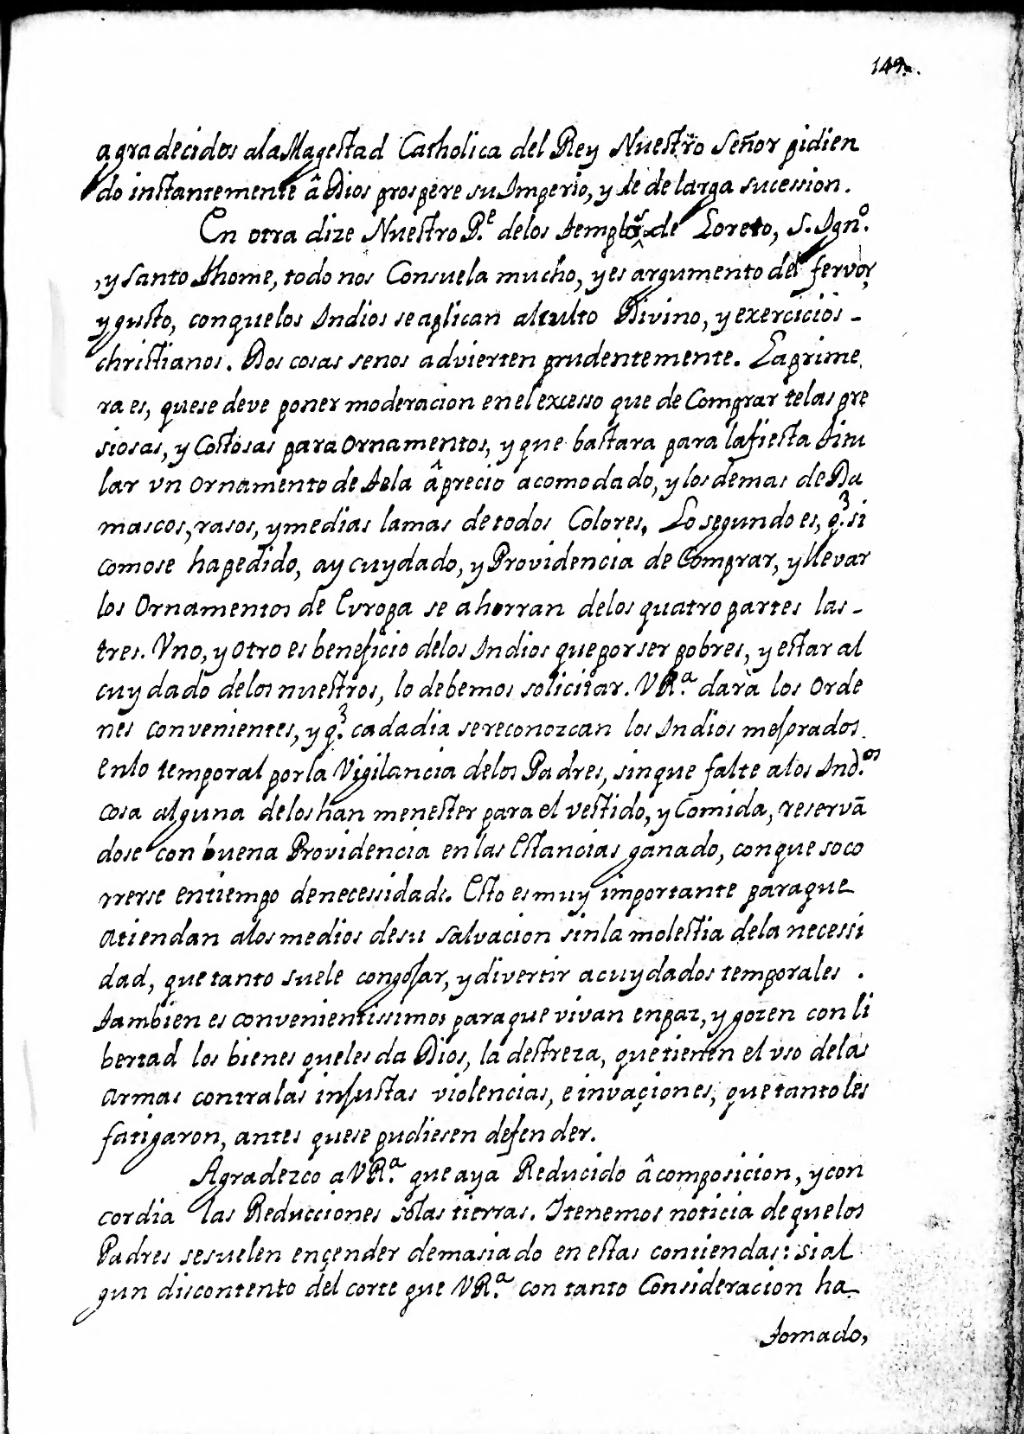 149.
agradecidos ala Magestad Catholica del Rey Nuestro Señor pidien
do instantemente â Dios prospere su Imperio, y le de larga sucession.
En otra dize Nuestro P.ᵉ delos templos de Loreto, S. Ign.º
, y Santo Thome, todo nos Consuela mucho, y es argumento del fervor,
y gusto, conque los Indios se aplican al culto Divino, y exercicios -
christianos. Dos cosas senos advierten prudentemente. La prime
ra es, quese deve poner moderacion en el excesso que de Comprar telas pre
siosas, y Costosas para ornamentos, y que bastara para la fiesta titu
lar vn ornamento de tela â precio acomodado, y los demas de Da
mascos, rasos, y medias lamas de todos Colores. Lo segundo es, q̃ si
como se ha pedido, ay cuydado, y Providencia de Comprar, y llevar
los Ornamentos de Evropa se ahorran delos quatro partes las -
tres. Vno, y otro es beneficio delos Indios que por ser pobres, y estar al
cuydado delos nuestros, lo debemos solicitar. VR.ᵃ darà los Orde
nes convenientes, y q̃ cada dia se reconozcan los Indios mejorados
enlo temporal por la Vigilancia delos Padres, sin que falte alos Ind.ᵒˢ
cosa alguna delos han menester para el vestido, y Comida, reservā
dose con buena Providencia en las Estancias ganado, conque soco
rrerse en tiempo de necessidad. Esto es muy importante paraque
atiendan alos medios desu salvacion sin la molestia dela necessi
dad, que tanto suele congojar, y divertir a cuydados temporales .
Tambien es convenientissimos paraque vivan en paz, y gozen con li
bertad los bienes queles da Dios, la destreza, que tienen el vso delas
armas contra las injustas violencias, e invaçiones, que tanto les
fatigaron, antes quese pudiesen defender.
Agradezco a VR.ᵃ que aya Reducido â composicion, y con
cordia las Reducciones solas tierras. Itenemos noticia de que los
Padres se suelen ençender demasiado en estas contiendas: si al
gun discontento del corte que VR.ᵃ con tanto Consideracion ha
tomado,